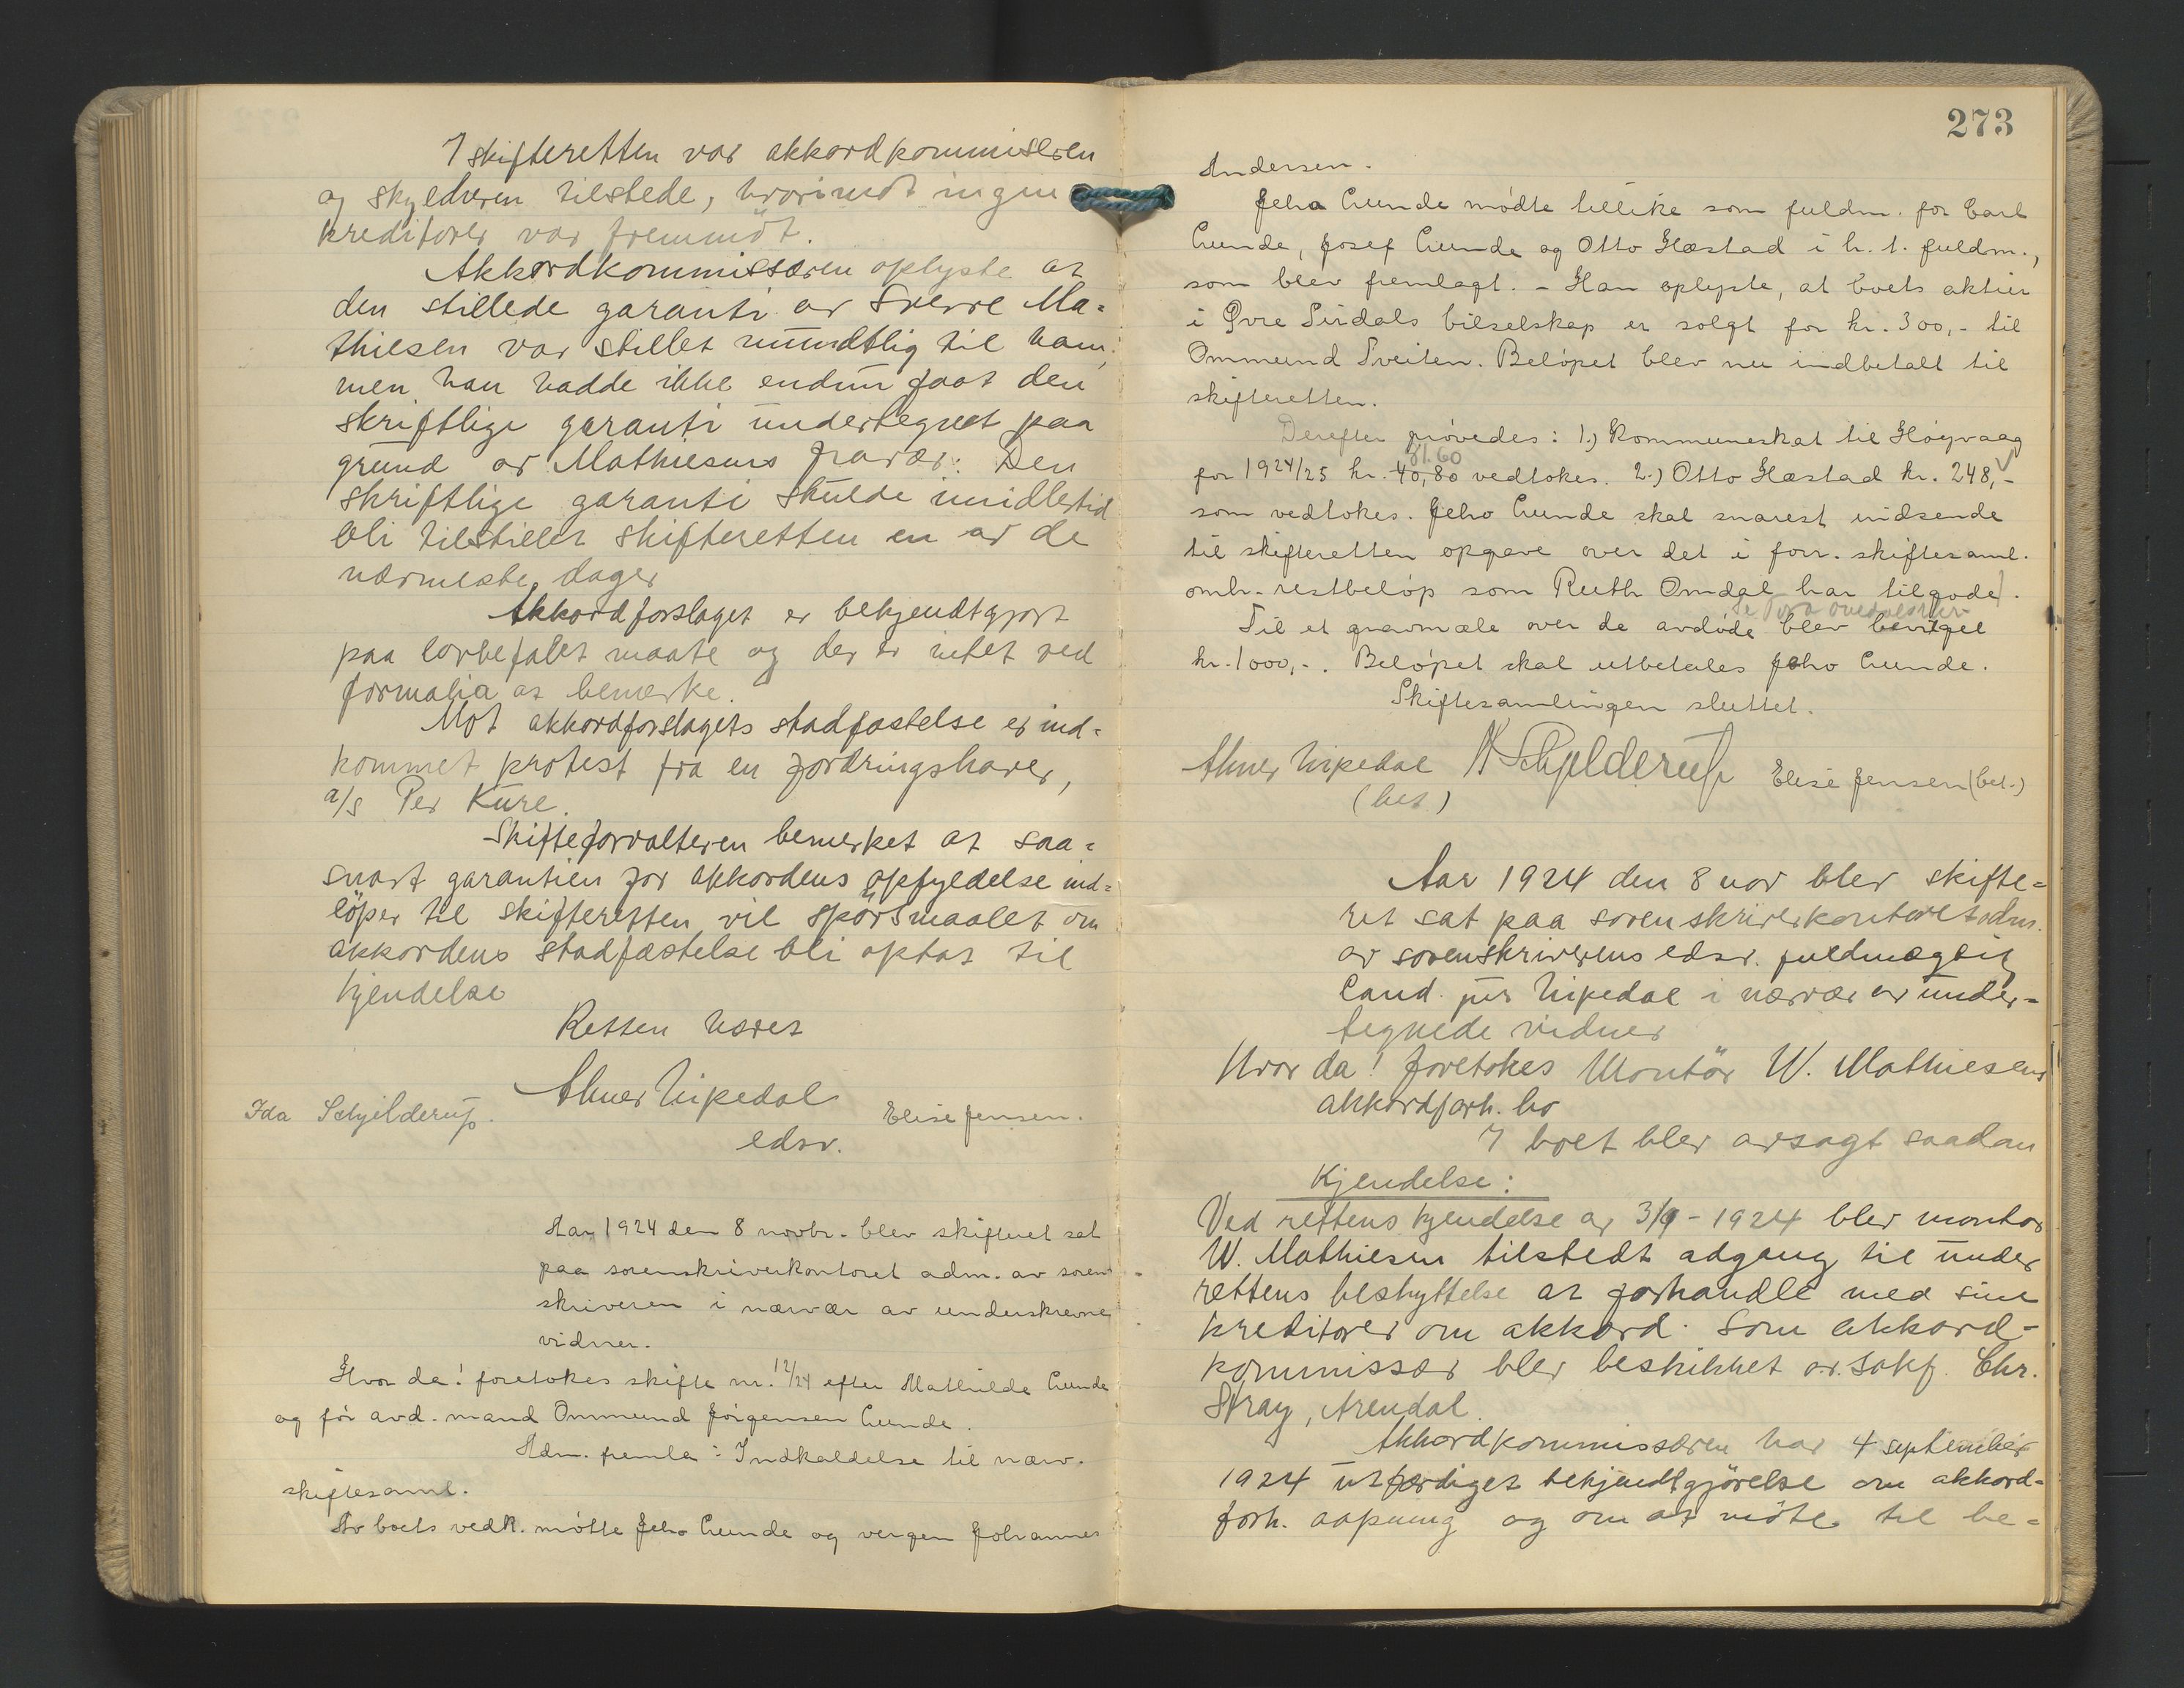 I skifteretten var akkordkommisæren
og skyldneren tilstede, hvorimot ingen
kreditorer var fremmöt.
Akkordkommissæren oplyste at
den stillede garanti av Sverre Ma-
thiesen var stillet mundtlig til ham,
men han hadde ikke endnu faat den
skriftlige garanti undertegnet paa
grund av Mathiesens fravær. Den
skriftlige garanti skulde imidlertid
bli tilstillet skifteretten en av de
nærmeste dager
Akkordforslaget er bekjendtgjort
paa lovbefalet maate og der er intet ved
formalia at bemerke.
Mot akkordforslagets stadfæstelse er ind-
kommet protest fra en fordringshaver,
a/s Per Kure.
Skifteforvalteren bemerket at saa-
snart garantien for akkordens opfyldelse ind-
löper til skifteretten vil spörsmaalet om
akkordens stadfæstelse bli optat til
kjendelse
Retten hævet
Abner Uipedal
Ida Schjelderup. Elise Jensen.
edsv.
Aar 1924 den 8 novbr. blev skifteret sat
paa sorenskriverkontoret adm. av soren-
skriveren i nærvær av underskrevne
vidner.
Hvor da! foretokes skifte nr. 12/24 efter Mathilde Lunde
og før avd. mand Ommund Jörgensen Lunde.
Adm. fremla: Indkaldelse til nærv.
skiftesaml.
Av boets vedk. møtte Jeho Lunde og vergen Johannes
273
Andersen.
Jeho Lunde mødte tillike som fuldm. for Carl
Lunde, Josef Lunde og Otto Hæstad i h. t. fuldm.,
som blev fremlagt. - Han oplyste, at boets aktier
i Øvre Sirdals bilselskap er solgt for kr. 300,- til
Ommund Tveiten. Beløpet blev nu indbetalt til
skifteretten.
Derefter prøvedes: 1.) Kommuneskat til Høgvaag
31.60
for 1924/25 kr. 40,80 vedtokes. 2.) Otto Hæstad kr. 248,-
som vedtokes. Jeho Lunde skal snarest indsende
til skifteretten opgave over det i forr. skiftesaml.
omh. restbeløp som Ruth Omdal har tilgode.
Til et gravmæle over de avdøde blev bevilget
kr. 1000,-. Beløpet skal utbetales Jeho Lunde.
Skiftesamlingen sluttet.
Abner Uipedal Schjelderup Elise Jensen (bet.)
(bet.)
Aar 1924 den 8 nov blev skifte-
ret sat paa sorenskriverkontoret adm.
av sorenskriverens edsv. fuldmægtig
Cand. jur Uipedal i nærvær av under-
tegnede vidner
Hvor da! foretokes Montör W. Mathiesens
akkordforh. bo
I boet blev avsagt saadan
Kjendelse:
Ved rettens kjendelse av 3/9-1924 blev montör
W. Mathiesen tilstedt adgang til under
rettens beskyttelse at forhandle med sine
kreditorer om akkord. Som akkord-
kommissær blev beskikket o.r.sakf. Chr.
Stray, Arendal.
Akkordkommissæren har 4 september
1924 utfærdiget bekjendtgjörelse om akkord-
forh. aapning og om at möte til be-